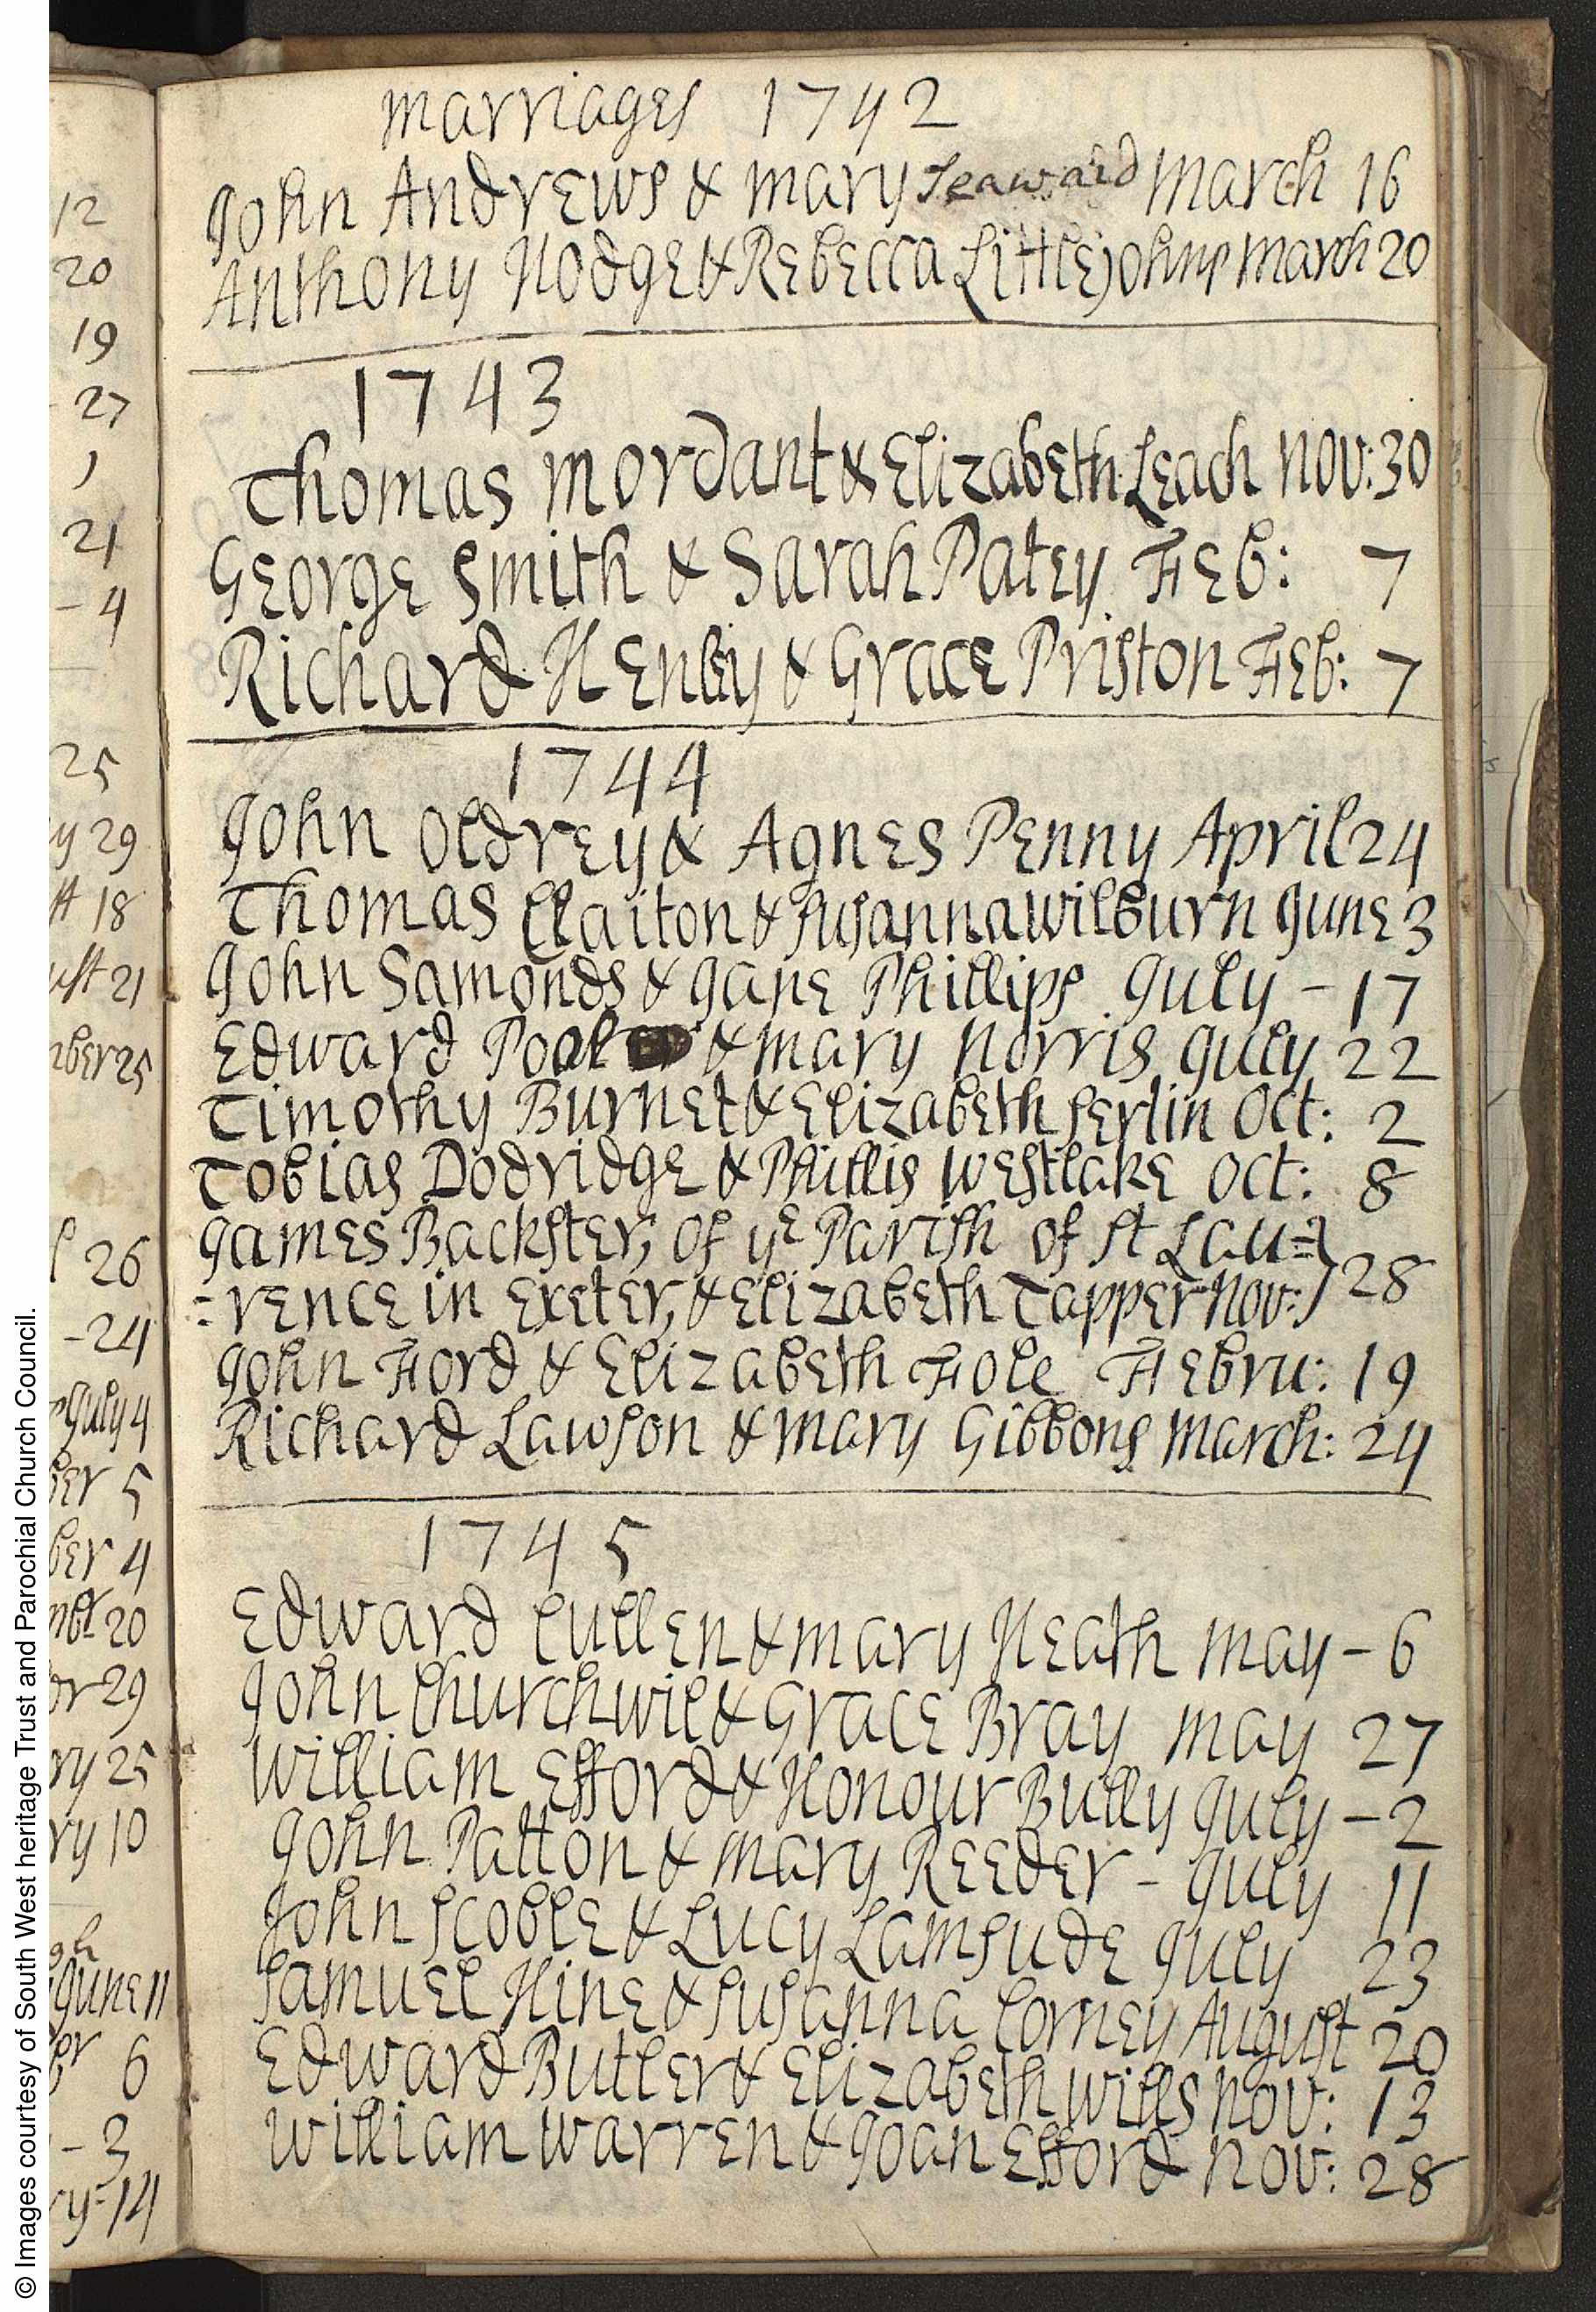 marriages 1742
John Andrews & mary Seaward march 16
Anthony Hodge & Rebecca Littlejohns march 20
1743
Thomas mordant & Elizabeth Leach nov: 30
George Smith & Sarah Patey Feb: 7
Richard Henley & Grace Priston Feb: 7
1744
John Oldrey & Agnes Penny April 24
Thomas Claiton & Susanna wilburn June 3
John Samonds & Jane Phillips July - 17
Edward Pool & mary norris July 22
Timothy Burnet & Elizabeth Serlin Oct: 2
Tobias Dodridge & Phillis westlake Oct: 8
James Backster, of ye Parish of St Lau=
=rence in Exeter, & Elizabeth Tapper nov: 28
John Ford & Elizabeth Fole Febru: 19
Richard Lawson & mary Gibbons march: 24
1745
Edward Cullen & mary Heath may - 6
John Churchwil & Grace Bray may 27
william Efford & Honour Bully July - 2
John Patton & mary Reeder - July 11
John Scoble & Lucy Lamsude July 23
Samuel Hine & Susanna Corney August 20
Edward Butler & Elizabeth wills nov: 13
william warren & Joan Efford nov: 28
12
20
19
27
21
- 4
25
29
18
21
25
26
- 24
July 4
5
4
20
29
25
10
June 11
6
- 3
14
© Images courtesy of South West heritage Trust and Parochial Church Council.